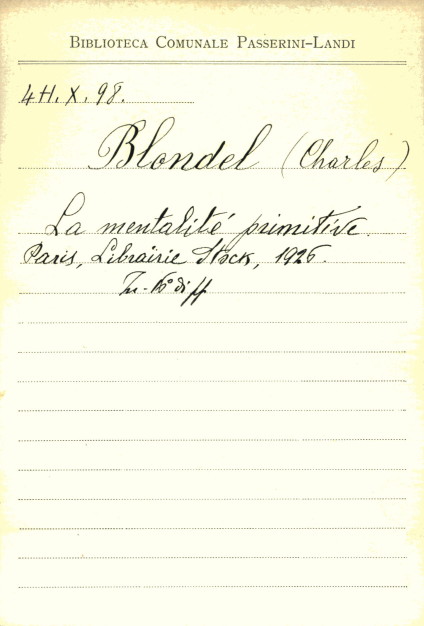 BIBLIOTECA COMUNALE PASSERINI-LANDI
4H. X. 98.
Blondel (Charles)
La mentalité primitive.
Paris, Librairie Stock, 1926.
In-16° di ff